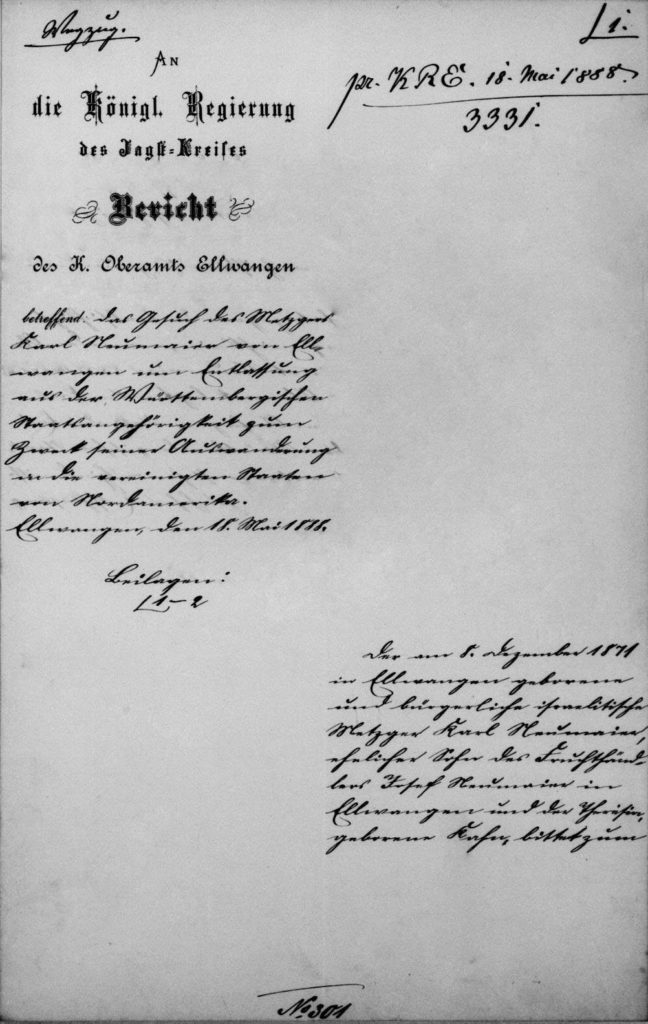 Wegzug.
[ 1.
AN
die Königl. Regierung
des Jagst-Kreises
Bericht
des K. Oberamts Ellwangen
pr. KRE. 18. Mai 1888.
3331.
betreffend: das Gesuch des Metzgers
Karl Neumaier von Ell-
wangen um Entlassung
aus der Württembergischen
Staatsangehörigkeit zum
Zweck seiner Auswanderung
in die vereinigten Staaten
von Nordamerika.
Ellwangen, den 18. Mai 1888.
Beilagen:
[1–2
Der am 8. Dezember 1871
in Ellwangen geborene
und bürgerliche israelitische
Metzger Karl Neumaier,
ehelicher Sohn des Fruchthänd-
lers Josef Neumaier in
Ellwangen und der Theresia,
geborene Kahn, bittet zum
No 301